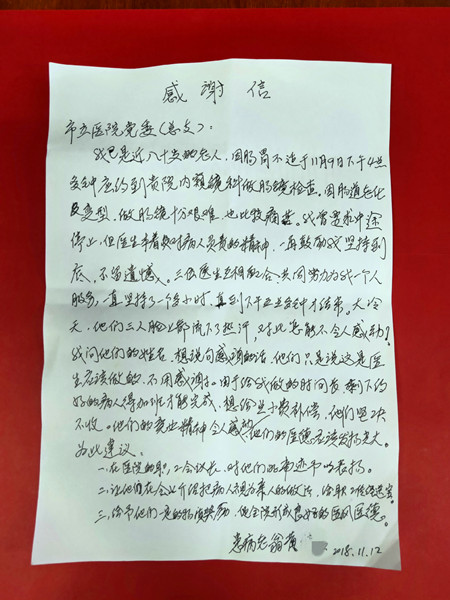 感谢信
市立医院党委(总支):
我已是近八十岁的老人,因肠胃不适于11月9日下午4点
多钟应约到贵院内窥镜科做肠镜检查。因肠道老化
及变型,做肠镜十分艰难,也比较痛苦。我曾要求中途
停止,但医生本着对病人负责的精神,一再鼓励我坚持到
底,不留遗憾。三位医生互相配合、共同努力为我一个人
服务,一直坚持了一个多小时,直到下午五点多钟才结束。大冷
天,他们三人脸上都流下了热汗,对此怎能不令人感动?
我问他们的姓名,想说句感谢的话,他们只是说这是医
生应该做的,不用感谢了。由于给我做的时间长,剩下约
好的病人得加班才能完成,想给点少费补偿,他们坚决
不收。他们的敬业精神令人感动,他们的医德应该发扬光大。
为此建议:
一、在医院的职工会议上,对他们的事迹予以表扬。
二、让他们在会上介绍把病人视为亲人的做法,给职工传经送宝。
三、给予他们一定的物质奖励,使全院形成良好的医风医德。
患病老翁黄
2018.11.12